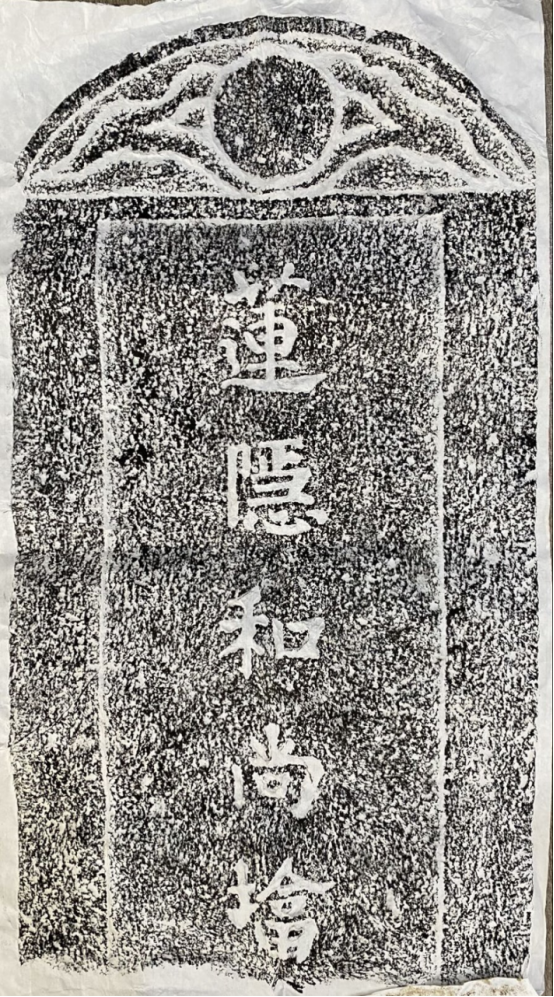 蓮隱和尚塔